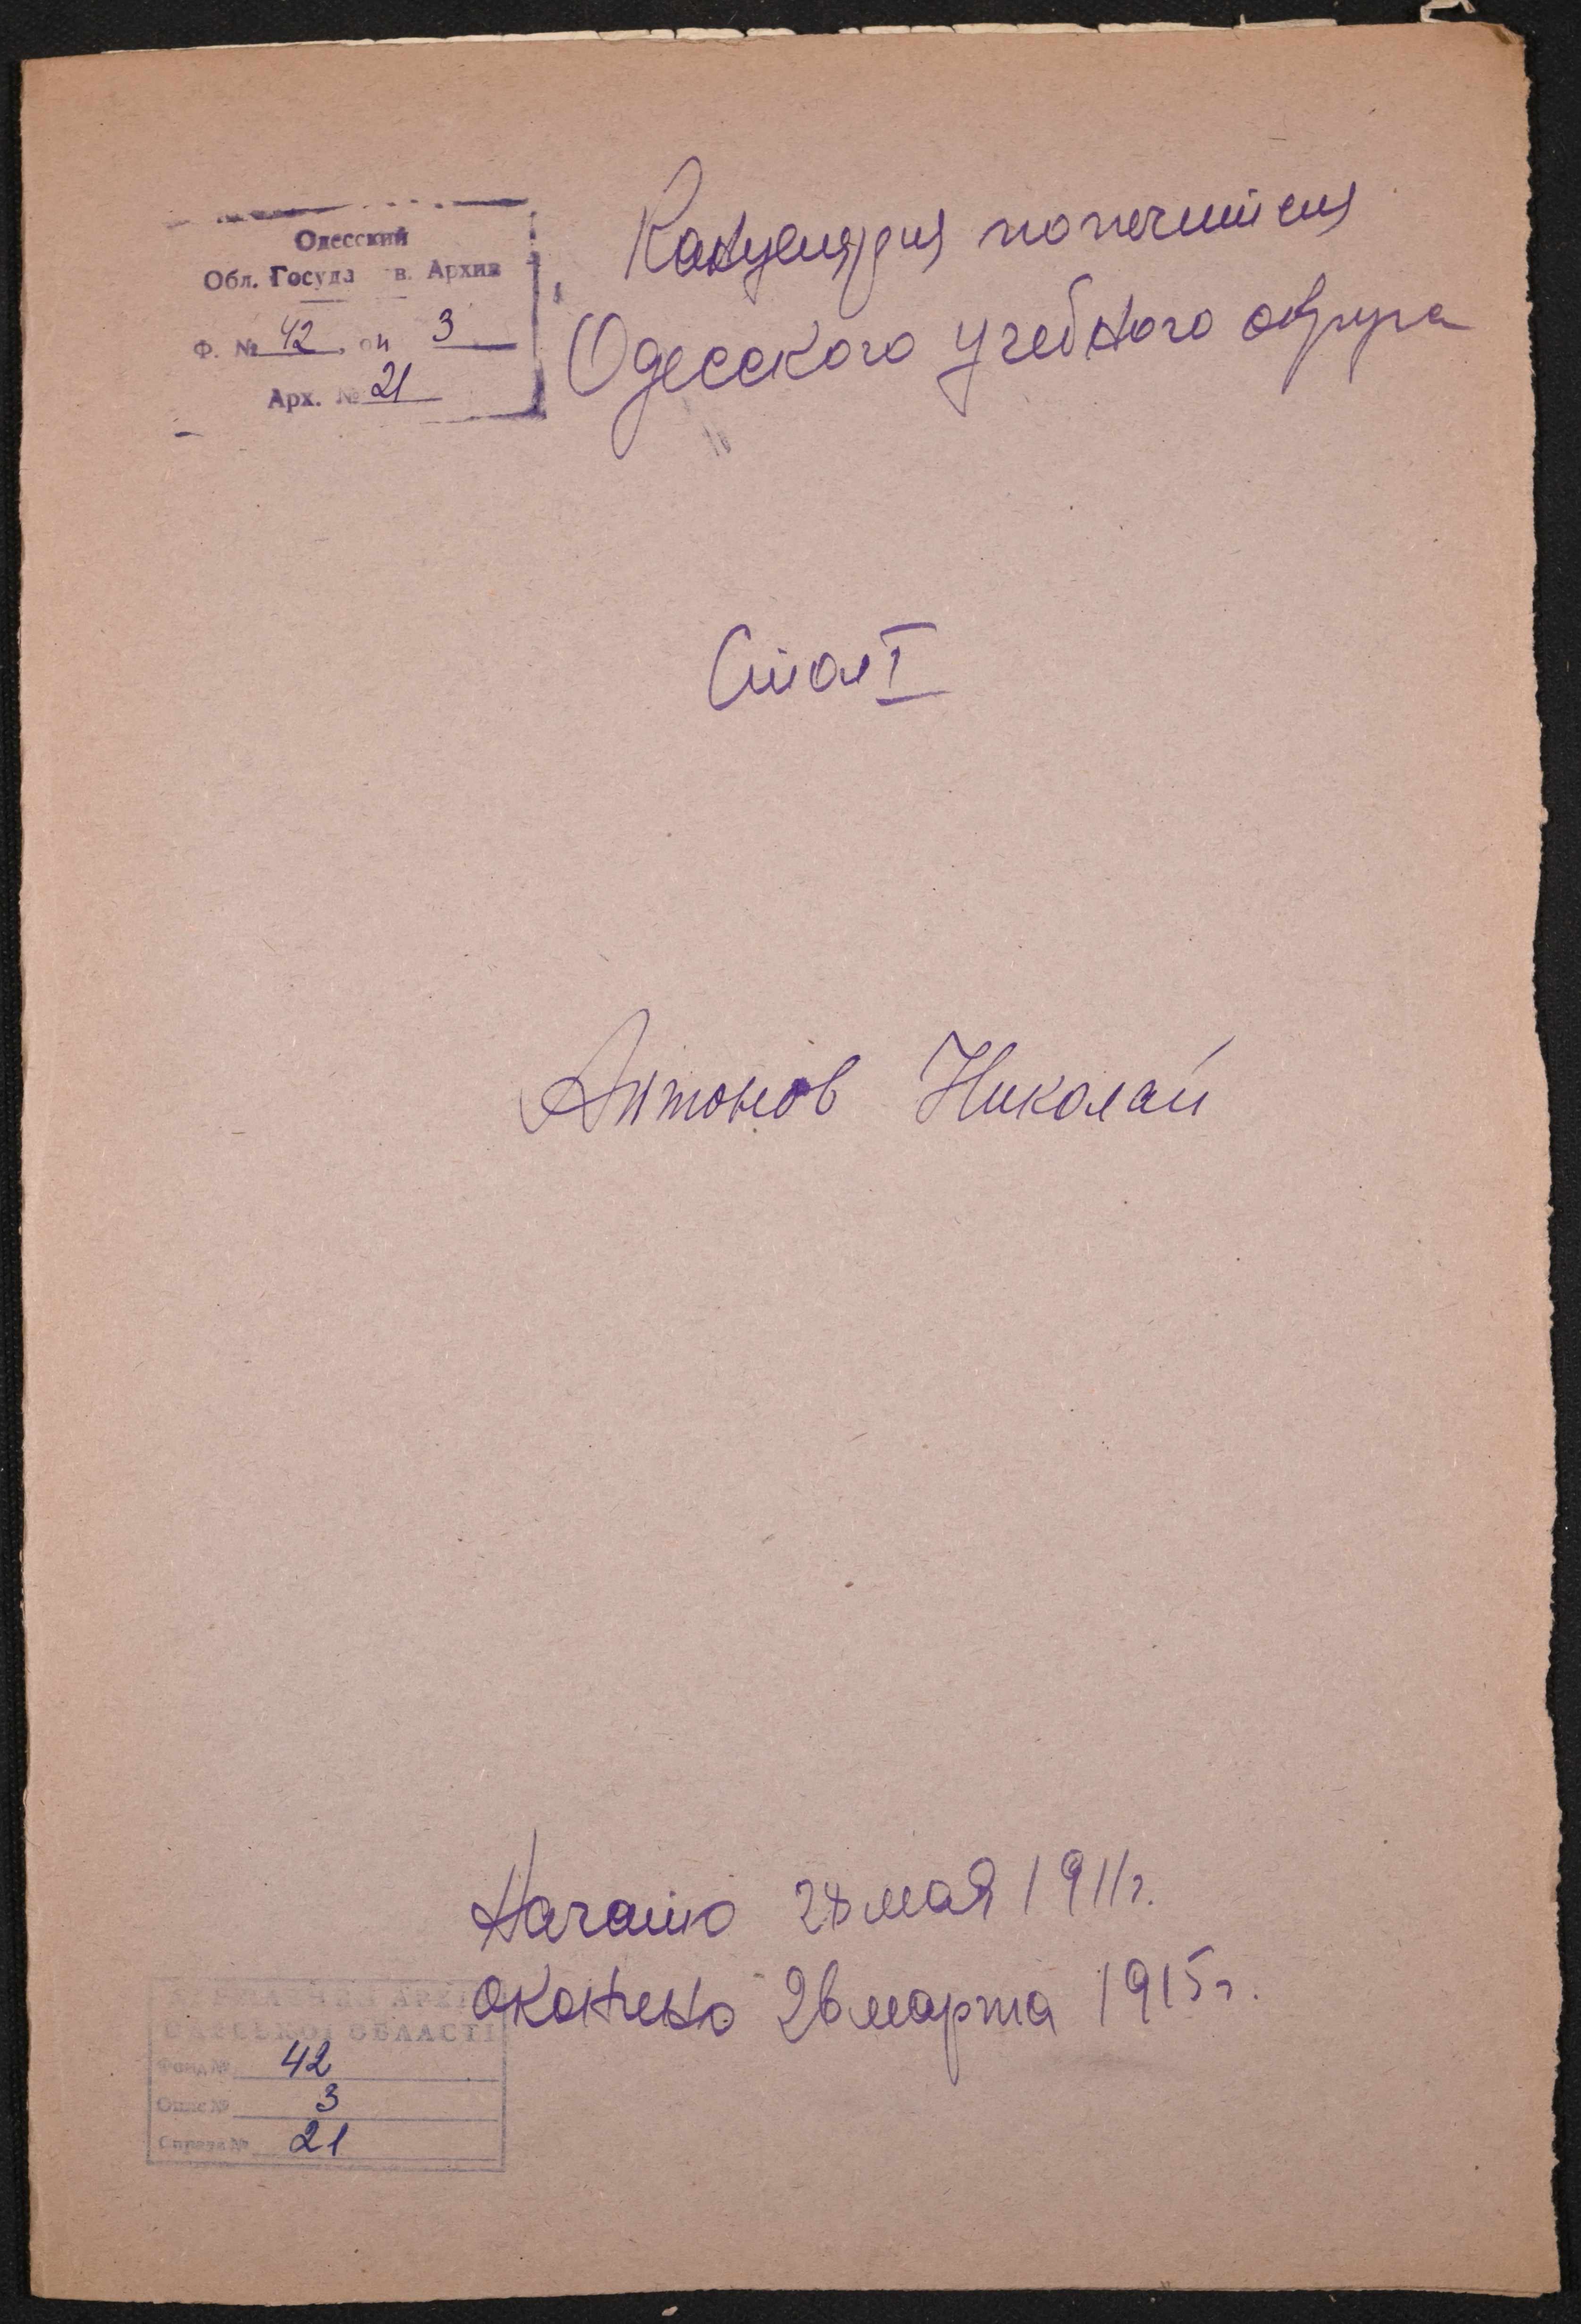 Одесский
Обл. Госуда в. Архив
Ф. № 42, оп 3
Арх. № 21
Канцелярия попечителя
Одесского учебного округа
Стол I
Антонов Николай
Начато 28 мая 1911 г.
Окончено 26 марта 1915 г.
ОДЕСЬКОЇ ОБЛАСТІ
Фонд № 42
Опис № 3
Справа № 21